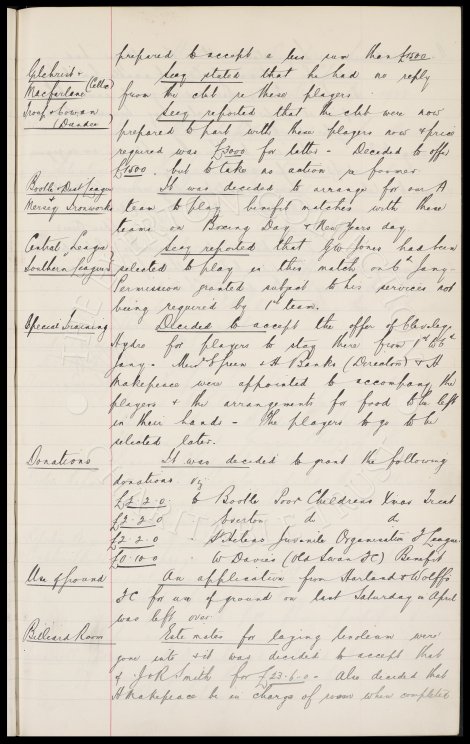 prepared to accept a less sum than £1500.
Gilchrist & Macfarlane (Celtic)
Secy stated that he had no reply
from the club re these players.
Troup & Cowan (Dundee)
Secy reported that the club were now
prepared to part with these players now & price
required was £3000 for latter - Decided to offer
£1500. but to take no action re former
Bootle & Dist League & Mersey Ironworks
It was decided to arrange for our A
team to play benefit matches with these
teams on Boxing Day & New Years day.
Central League v Southern League
Secy reported that G W Jones had been
selected to play in this match on 6th Jany-
Permission granted subject to his services not
being required by 1st team.
Special Training
Decided to accept the offer of
Hydro for players to stay there from 1st to 6th
Jany - Messrs Green & H Banks (Directors) & H
Makepeace were appointed to accompany the
players & the arrangements for food to be left
in their hands - The players to go to be
selected later.
Donations
It was decided to grant the following
donations. viz
£2.2.0. to Bootle Poor Childrens Xmas Treat
£2.2.0 - Everton do do
£2.2.0 - St Helens Juvenile Organisation F League
£0.10.0 - W Davies (Old Swan FC) Benefit
Use of Ground
An application from Harland & Wolffs
FC for use of ground on last Saturday in April
was left over.
Billiard Room
Estimates for laying linoleum were
gone into & it was decided to accept that
of J & R Smith for £23.6.0 - Also decided that
H Makepeace be in charge of room when completed